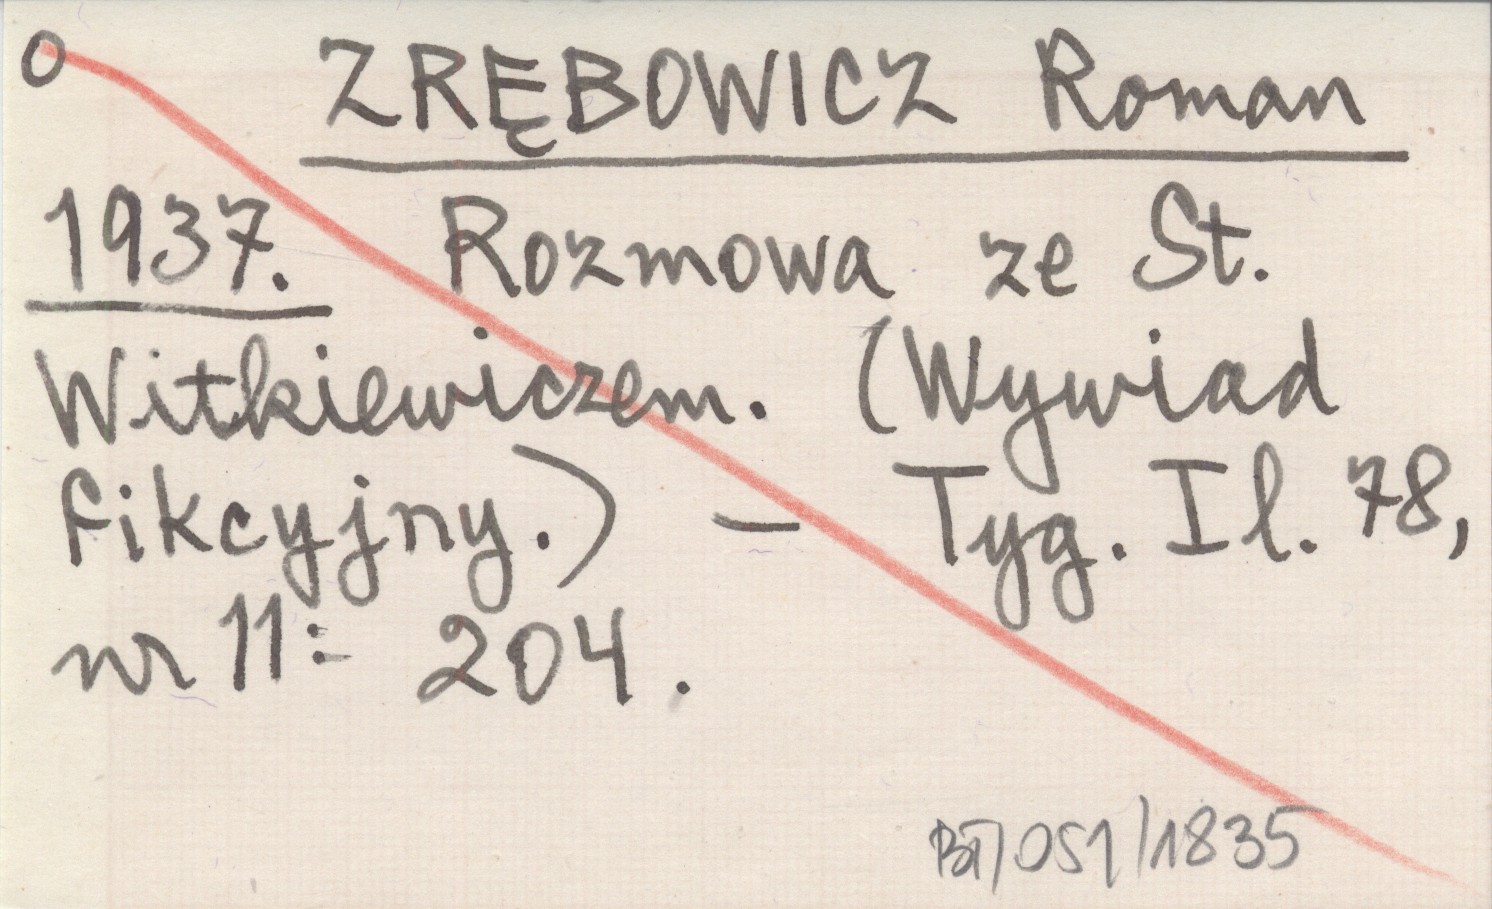 O ZRĘBOWICZ Roman
1937. Rozmowa ze St.
Witkiewiczem. (Wywiad
fikcyjny.) – Tyg. Il. 78,
nr 11: 204.
BT/051/1835